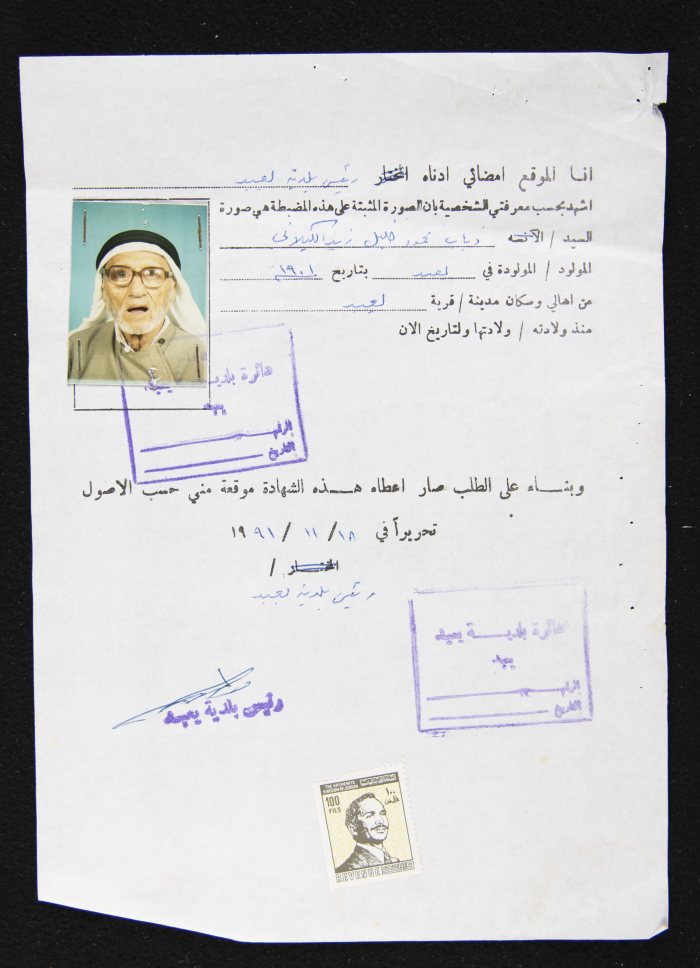 انا الموقع امضائي ادناه المختار رئيس بلدية يعبد
اشهد بحسب معرفتي الشخصية بان الصورة المثبتة على هذه المضبطة هي صورة
السيد / الآنسه دياب محمود خليل زيد الكيلاني
المولود / المولودة في يعبد بتاريخ ١٩٠١
من اهالي وسكان مدينة / قرية يعبد
منذ ولادته / ولادتها ولتاريخ الان
دائرة بلدية يعبد
يعبد
الرقم
التاريخ
وبنـــاء على الطلب صار اعطاء هـــذه الشهادة موقعة مني حسب الاصول
تحريراً في ١٨ / ١١ / ١٩٩١
المختـــار /
رئيس بلدية يعبد
دائرة بلديـــة يعبد
يعبد
الرقم
التاريخ
رئيس بلدية يعبد
THE HASHEMITE
KINGDOM OF JORDAN
المملكة الاردنية الهاشمية
100
FILS
١٠٠
فلس
REVENUE